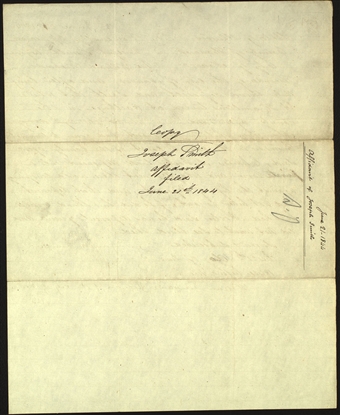 Copy
Joseph Smith
affidavit
filed
June 21st 1844
June 21. 1844
Affidavit of Joseph Smith